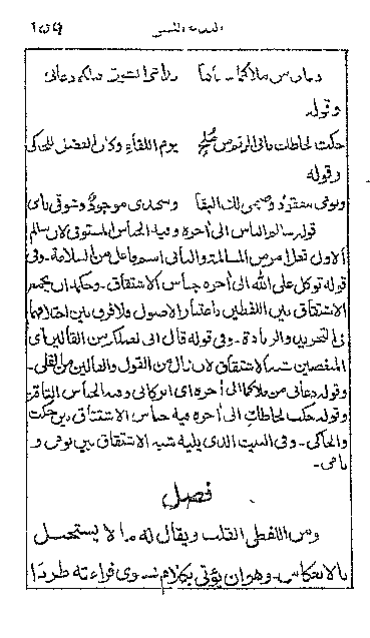 ١٥٩
دعاني من ملامكما سفاها فداعي الشوق قبلكما دعاني
وقوله
يوم اللقاء وكان الفضل للحاكي
وقوله
ونومي مفقود وصبري لك البقا وسهدي موجود وشوقي نامي
قوله سالم الناس الى آخره وفيه الجناس المستوفى لان سالم
الاول فعل امر من المسالمة والثاني اسم فاعل من السلامة - وفي
قوله توكل على الله الى آخره جناس الاشتقاق - وحكمه ان يجمع
الاشتقاق بين اللفظين باعتبار الاصول ولا فرق بين اختلافهما
في التجريد والزيادة - وفي قوله قال اني لعملكم من القالين اي
المبغضين شبه الاشتقاق لان قال من القول والقالين من القلى -
وقوله دعاني من ملامكما الى آخره اي اتركاني وفيه الجناس التام
وقوله حكت لحاظك الى آخره فيه جناس الاشتقاق بين حكت
والحاكي - وفي البيت الذي يليه شبه الاشتقاق بين نومي و
نامي -
فصل
ومن اللفظي القلب ويقال له ما لا يستحيل
بالانعكاس - وهو ان يؤتى بكلام تسوى قراءته طردا